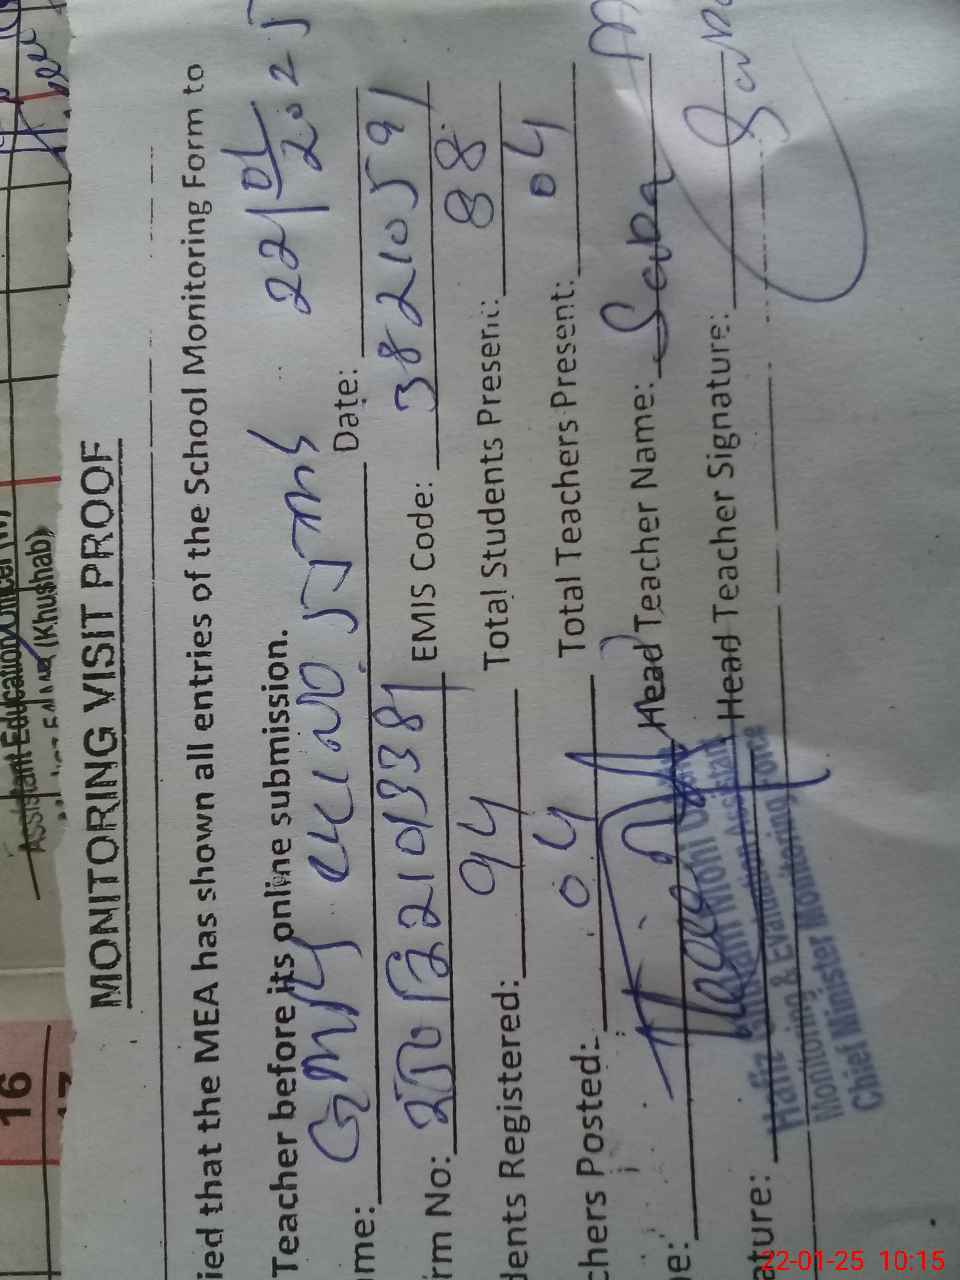 Assistant Education Officer (M)
(Khushab)
16
17
MONITORING VISIT PROOF
ied that the MEA has shown all entries of the School Monitoring Form to
Teacher before its online submission.
22/01/2025
me: Date:
rm No: EMIS Code: 38210591
dents Registered: 94 Total Students Present: 88
chers Posted: 04 Total Teachers Present: 04
e: Head Teacher Name: Saba
ature: Head Teacher Signature:
Hafiz Ghulam Mohi
Monitoring & Evaluation Assistant
Chief Minister Monitoring Force
22-01-25 10:15